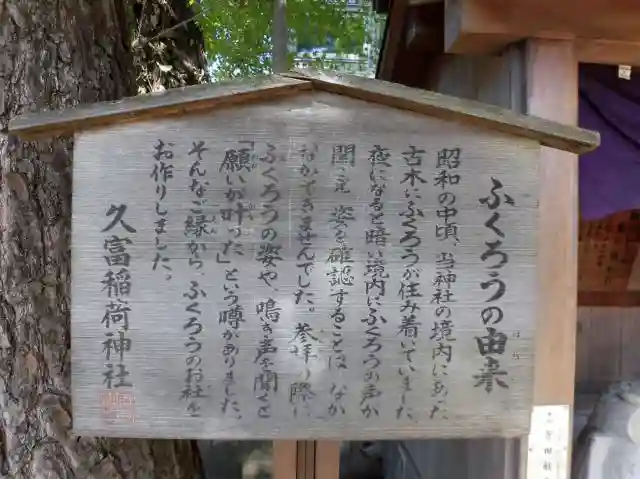 ふくろうの由来
昭和の中頃、当神社の境内にあった
古木にふくろうが住み着いていました。
夜になると暗い境内にふくろうの声が
聞こえ 姿を確認することは なか
なかできませんでした。 参拝の際に
ふくろうの姿や、鳴き声を聞くと
「願いが叶った」という噂がありました。
そんなご縁から、ふくろうのお社を
お作りしました。
久富稲荷神社